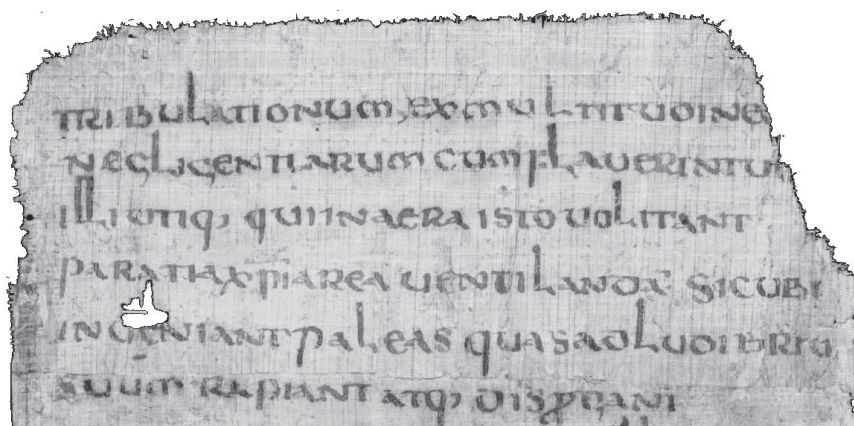 tribulationum, ex multitudine
negligentiarum cum flauerint
illi utiq, qui in aera isto uolitant
parati a xp̄i area uentilandā sicubi
inueniant paleas quas ad ludibriu
suum rapiant atq, disꝑgant